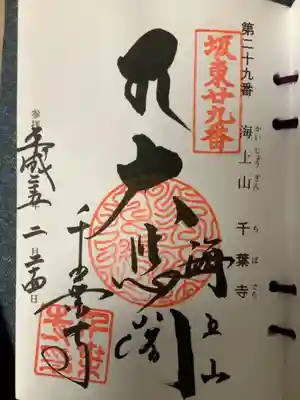 第二十九番 海上山 千葉寺
かいじょうざん ちばでら
坂東廿九番
大悲閣
海上山
千葉寺
参拝
平成二五年 二月 二四日